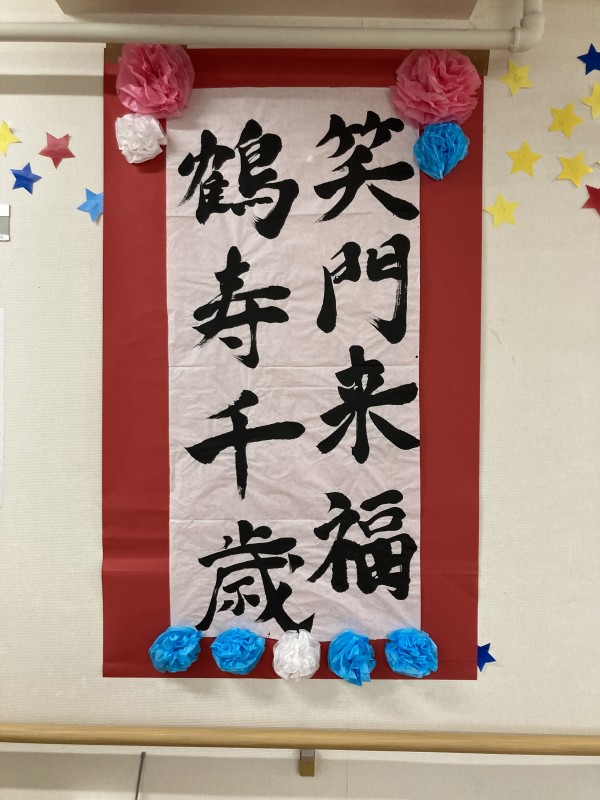 笑門来福
鶴寿千歳